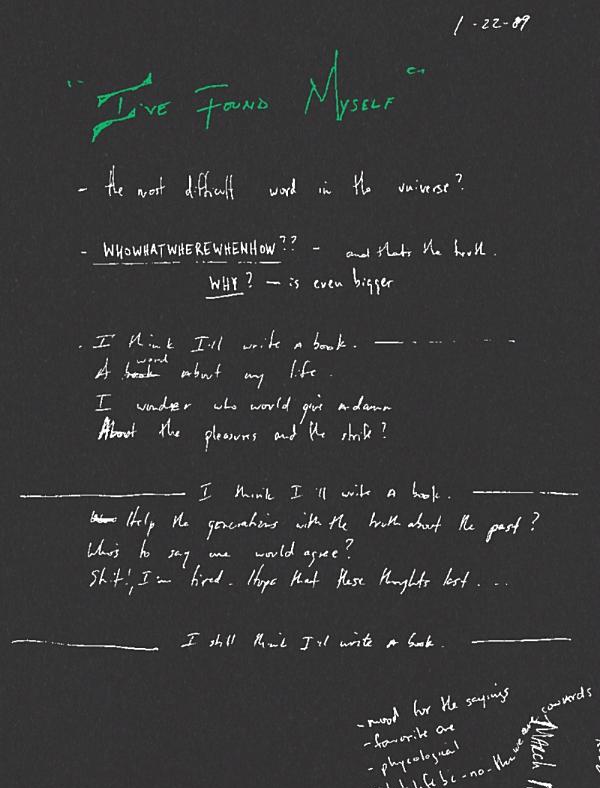 1-22-89
"I've Found Myself"
- the most difficult word in the universe?
- WHOWHATWHEREWHENHOW?? - and thats the truth.
WHY? - is even bigger
. I think I'll write a book.
word
A book about my life.
I wonder who would give a damn
About the pleasures and the strife?
I think I'll write a book.
Help the generations with the truth about the past?
Who's to say we would agree?
Shit!, I'm tired. Hope that these thoughts last. ...
I still think I'll write a book.
- mood for the sayings
- favorite are
- phycological
life be - no - then we are cowards
March